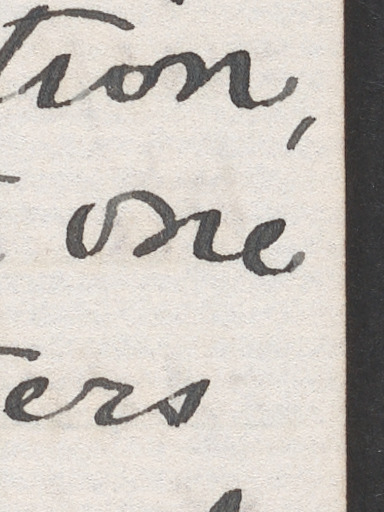 tion,
one
ters